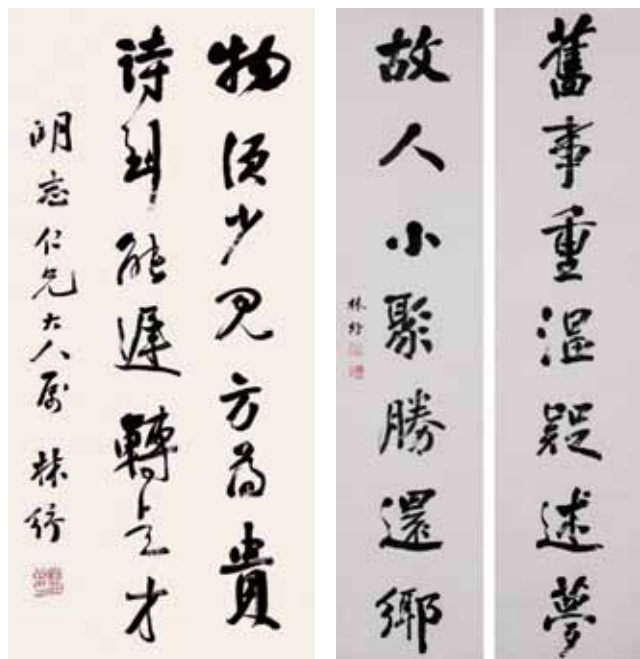 物須少見方為貴
詩到能遲轉是才
明志仁兄大人屬 林紓
舊事重溫疑述夢
故人小聚勝還鄉
林紓